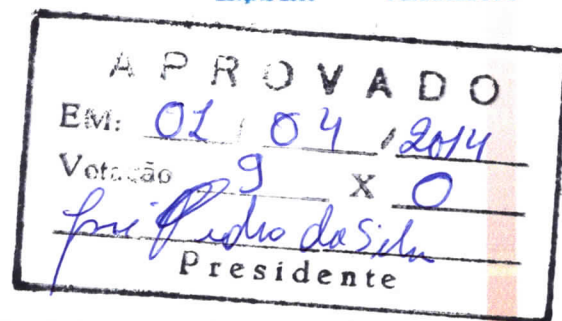 APROVADO
EM: 01 / 04 / 2014
Votação 9 X 0
José Pedro da Silva
Presidente